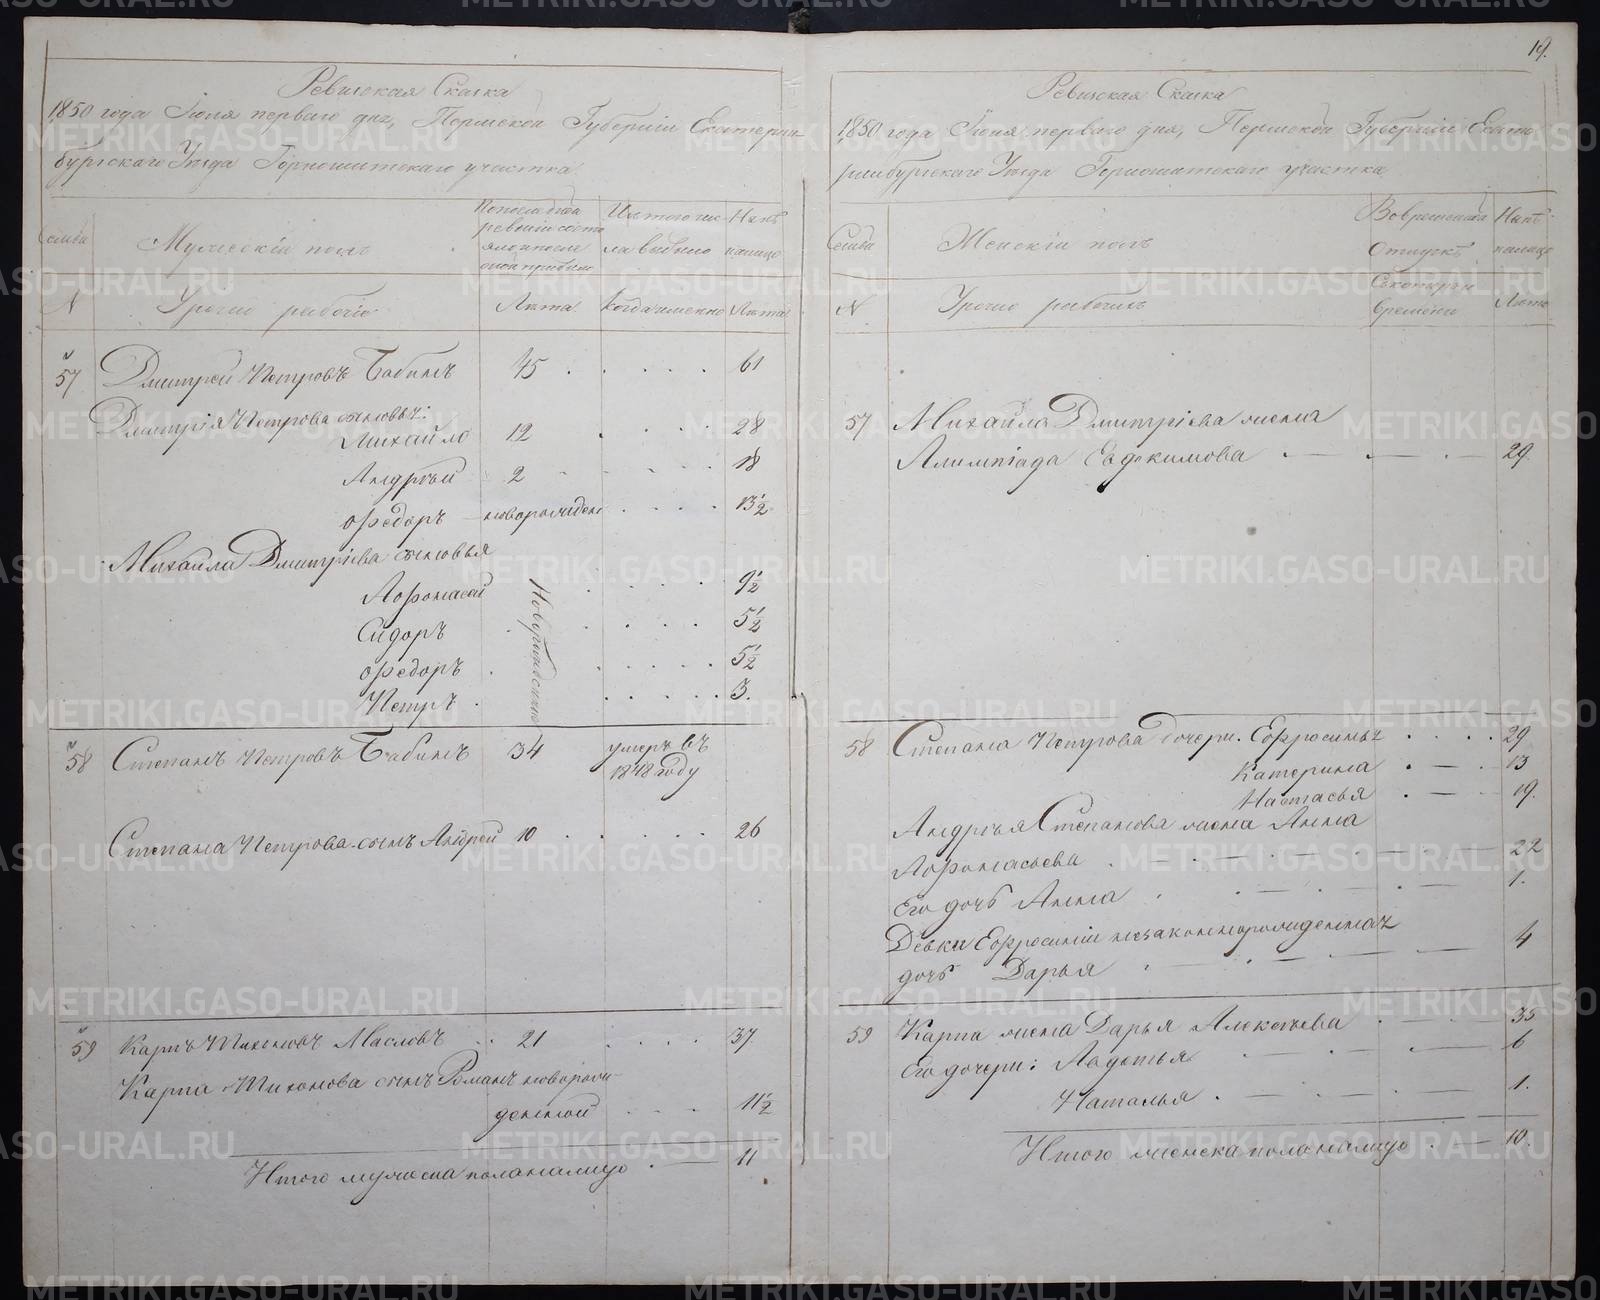 Ревизская Сказка
1850 года Іюля перваго дня, Пермской Губерніи Екатерин
бургскаго Уѣзда Горнощитскаго участка
Семьи
Мужескій полъ
По последней
ревизіи состо
яло и после
оной прибыло
Изъ того чис
ла выбыло
Нынѣ
налицо
№
Урочно рабочіе
Лѣта
когда именно
Лѣта
57
Дмитрей Петровъ Бабинъ 45 . . . . . 61
Дмитрія Петрова сыновья:
Михайло 12 . . . . 28
Андрей 2 . . . . 18
Федоръ новорожден . . . . 13 1/2
Михайла Дмитріева сыновья
Афонасей . . . . 9 1/2
Сидоръ . . . . 5 1/2
Федоръ . . . . 5 1/2
Петръ . . . . 3.
Новорожденные
58
Степанъ Петровъ Бабинъ 34 умеръ въ
1848 году
Степана Петрова сынъ Андрей 10 . . . . . 26
59
Карпъ Тихоновъ Масловъ . . 21 . . . . 37
Карпа Тихонова сынъ Романъ новорож-
денной . . . . 11 1/2
Итого мужеска пола налицо . — 11
19.
Ревизская Сказка
1850 года Іюля перваго дня, Пермской Губерніи Екате
ринбургскаго Уѣзда Горнощитскаго участка
Семьи
Женскій полъ
Во временной
отлучкѣ
Нынѣ
налицо
№
Урочно рабочихъ
Съ котораго
времени
Лѣта
57 Михайла Дмитріева жена
Алимпіада Евдокимова . — . — . — 29
58 Степана Петрова дочери. Ефросинья . . . . 29
Катерина . — . 13
Настасья . — . 19.
Андрея Степанова жена Анна
Афонасьева . — . — . — 22
Его дочь Анна . . — . — . — 1.
Девки Ефросиніи незаконнорожденная
дочь Дарья . — . — . — 4
59 Карпа жена Дарья Алексѣева . — . — 35
Его дочери: Авдотья — . — . — 6
Наталья . — . — . — 1.
Итого женска пола налицо . — 10.
METRIKI.GASO-URAL.RU